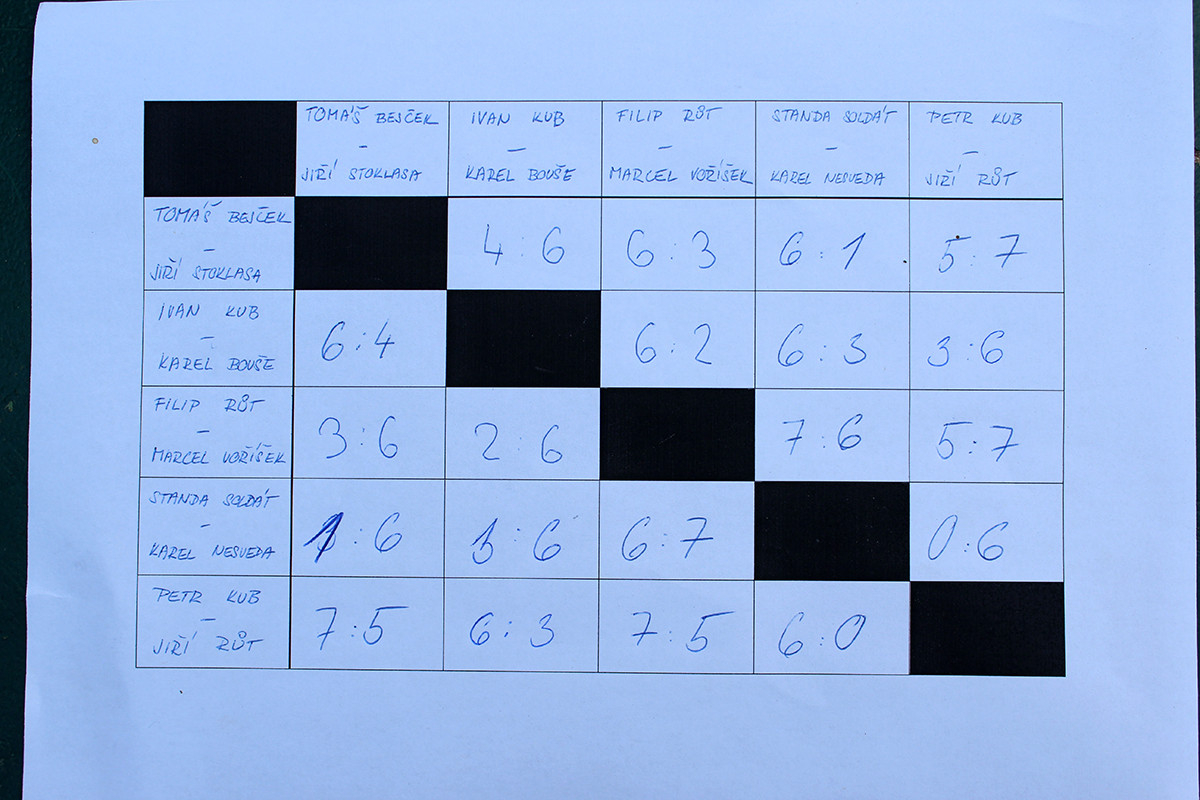 TOMÁŠ BEJČEK
–
JIŘÍ STOKLASA
IVAN KUB
–
KAREL BOUŠE
FILIP RŮT
–
MARCEL VOŘÍŠEK
STANDA SOLDÁT
–
KAREL NESVEDA
PETR KUB
–
JIŘÍ RŮT
TOMÁŠ BEJČEK
–
JIŘÍ STOKLASA
4:6
6:3
6:1
5:7
IVAN KUB
–
KAREL BOUŠE
6:4
6:2
6:3
3:6
FILIP RŮT
–
MARCEL VOŘÍŠEK
3:6
2:6
7:6
5:7
STANDA SOLDÁT
–
KAREL NESVEDA
1:6
3:6
6:7
0:6
PETR KUB
–
JIŘÍ RŮT
7:5
6:3
7:5
6:0